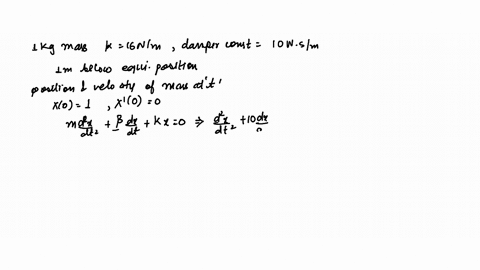 1 kg mass k = 16 N/m , damper const = 10 W.s/m
1m below equi. position
position & velocity of mass at 't'
x(0) = 1 , x'(0) = 0
m d²x/dt² + β dx/dt + kx = 0 ⇒ d²x/dt² + 10 dx